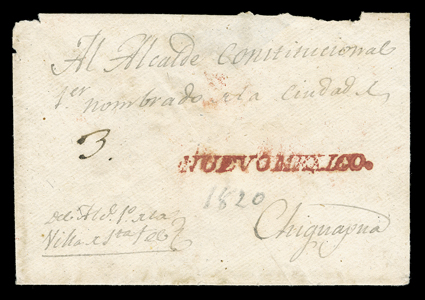 Al Alcalde Constitucional
1.er nombrado de la Ciudad de
3.
NUEVO MEXICO.
1820
del Alde. 1o. de la
Villa de Sta. Fee
Chiguagua